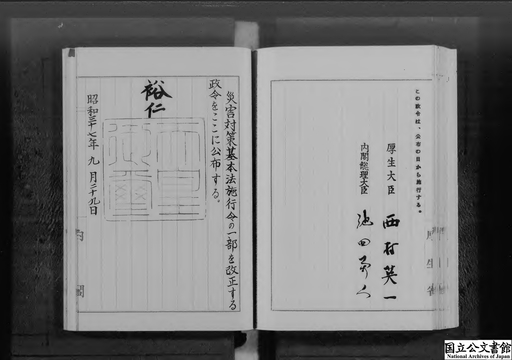 この政令は、公布の日から施行する。
厚生大臣 西村英一
内閣総理大臣 池田勇人
災害対策基本法施行令の一部を改正する
政令をここに公布する。
裕仁
天皇御璽
昭和三十七年 九月二十九日
内閣
国立公文書館
National Archives of Japan